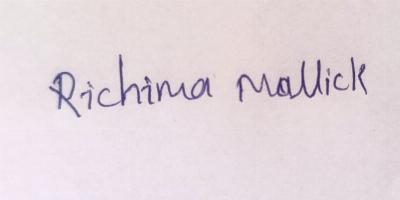 Richima Mallick